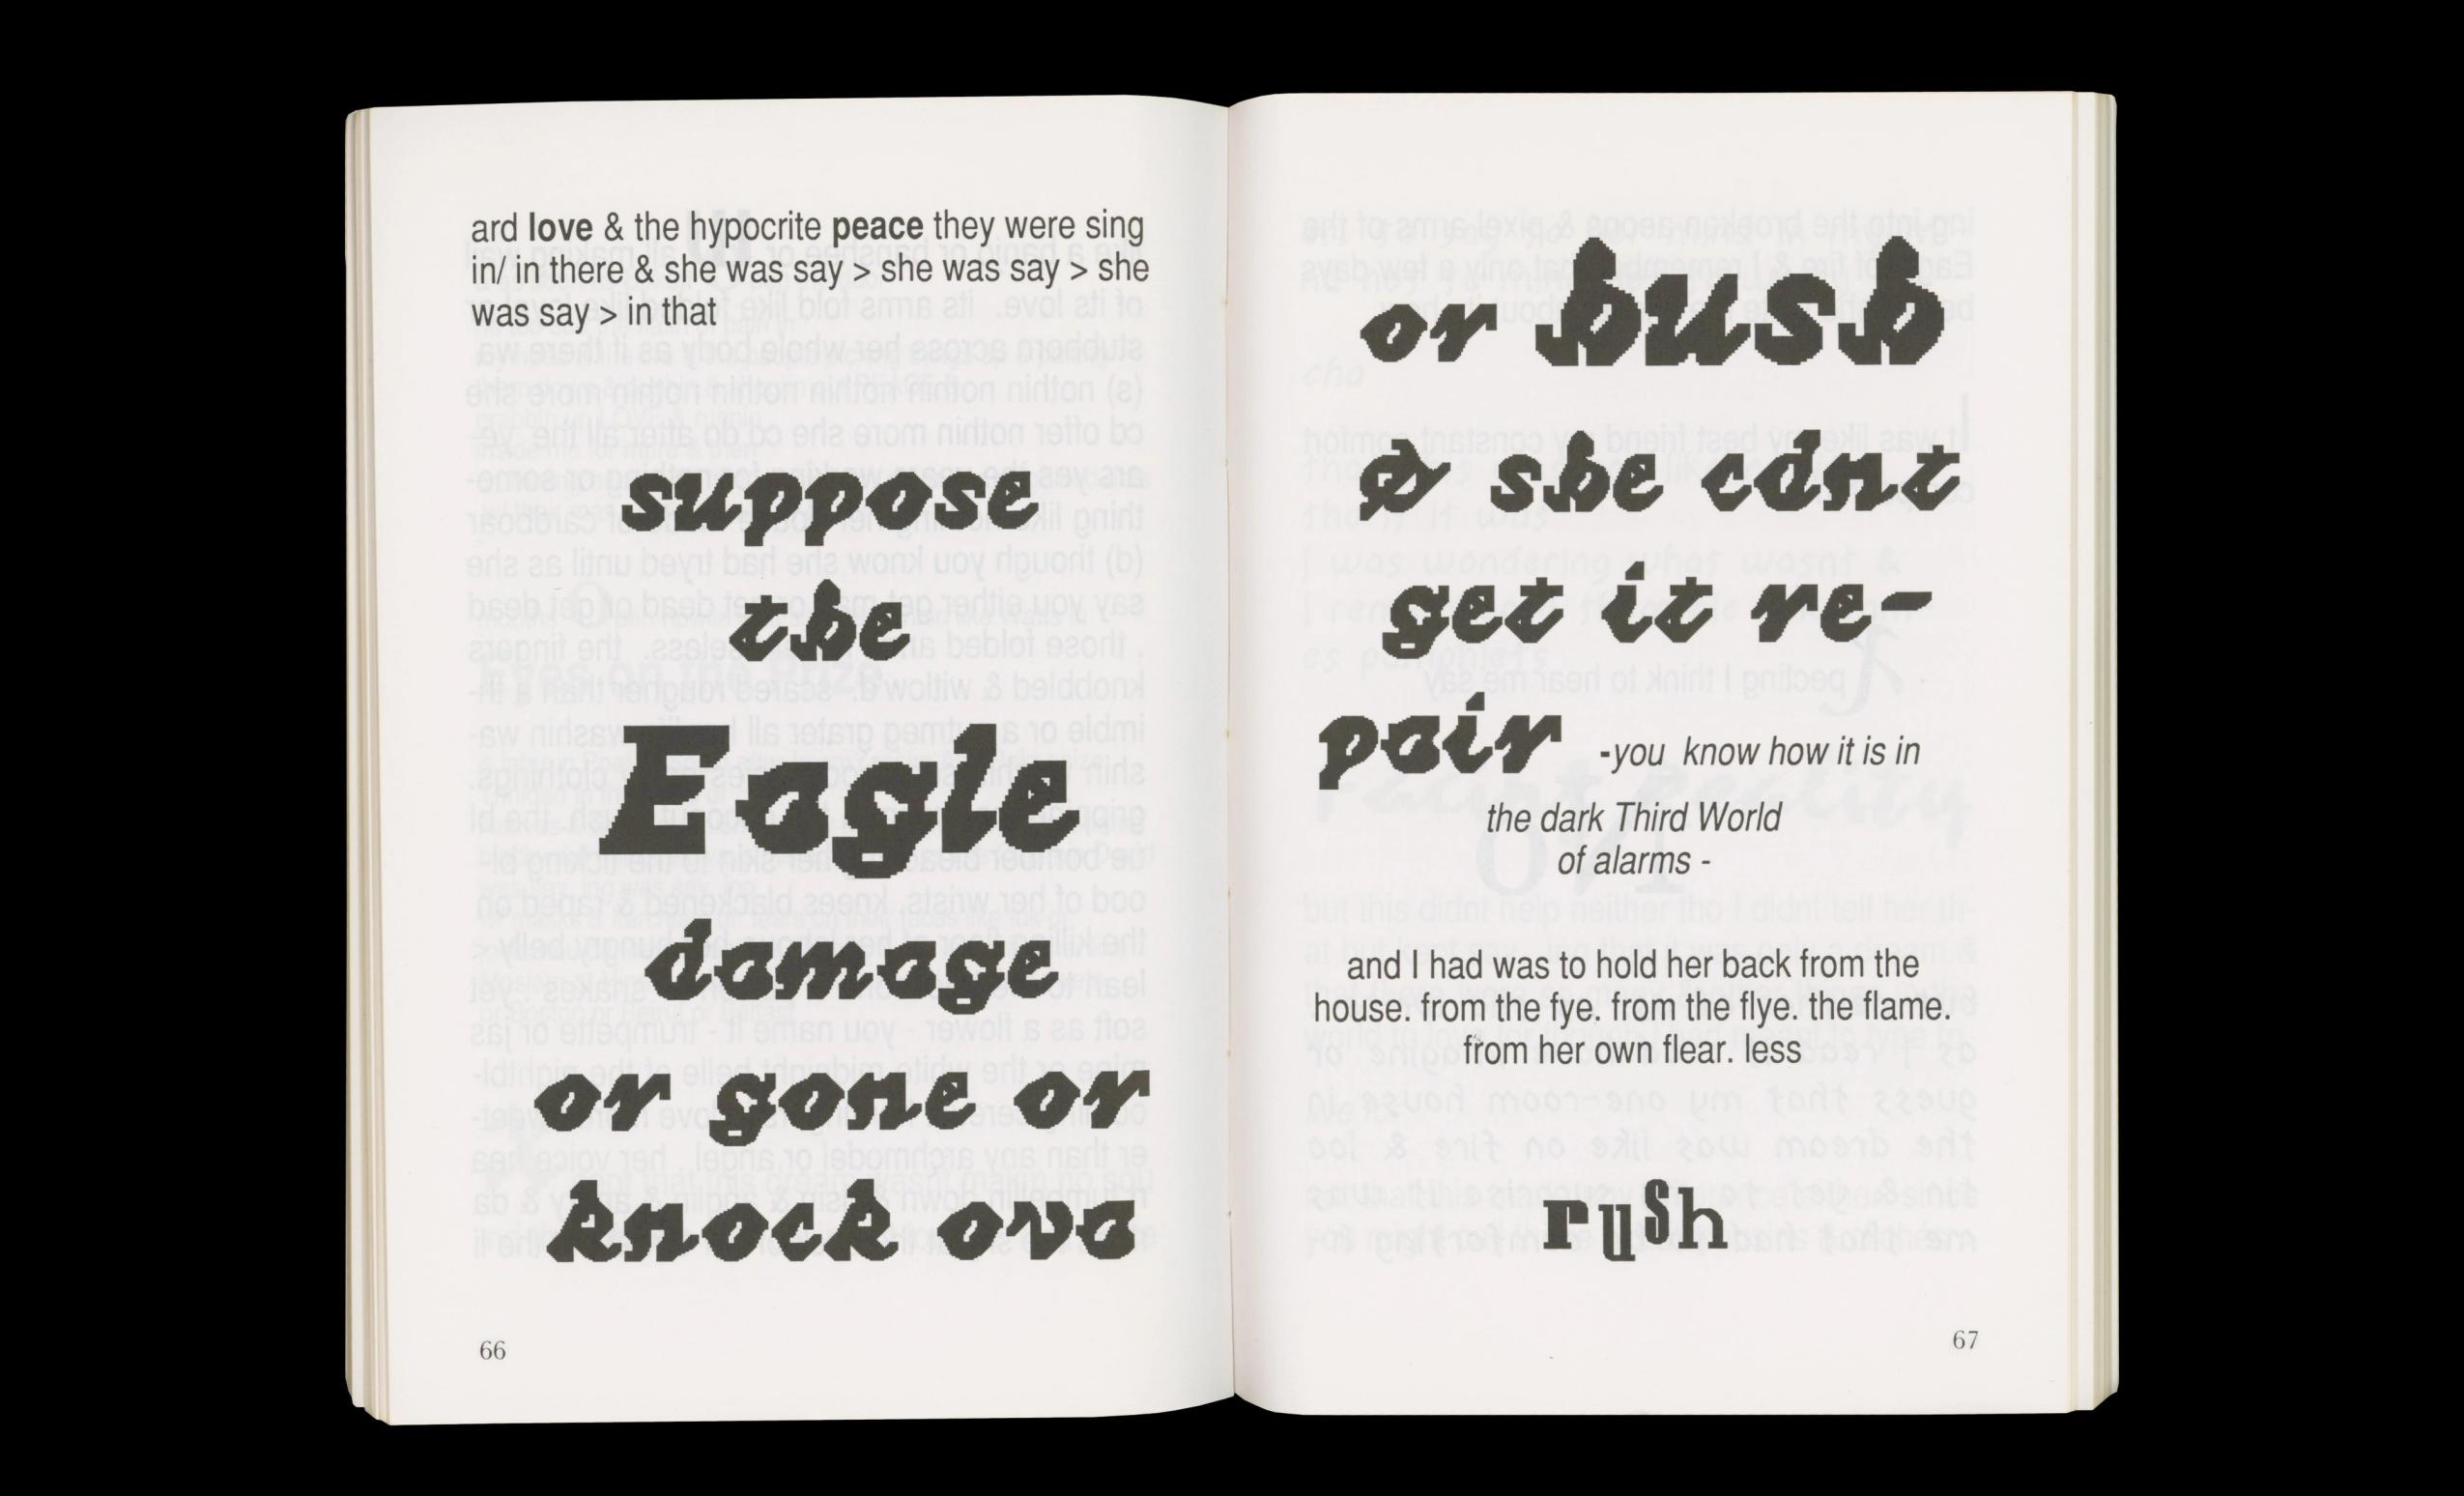 ard love & the hypocrite peace they were sing
in/ in there & she was say > she was say > she
was say > in that
suppose
the
Eagle
damage
or gone or
knock ova
66
or hush
& she cdnt
get it re-
pair -you know how it is in
the dark Third World
of alarms -
and I had was to hold her back from the
house. from the fye. from the flye. the flame.
from her own flear. less
rush
67